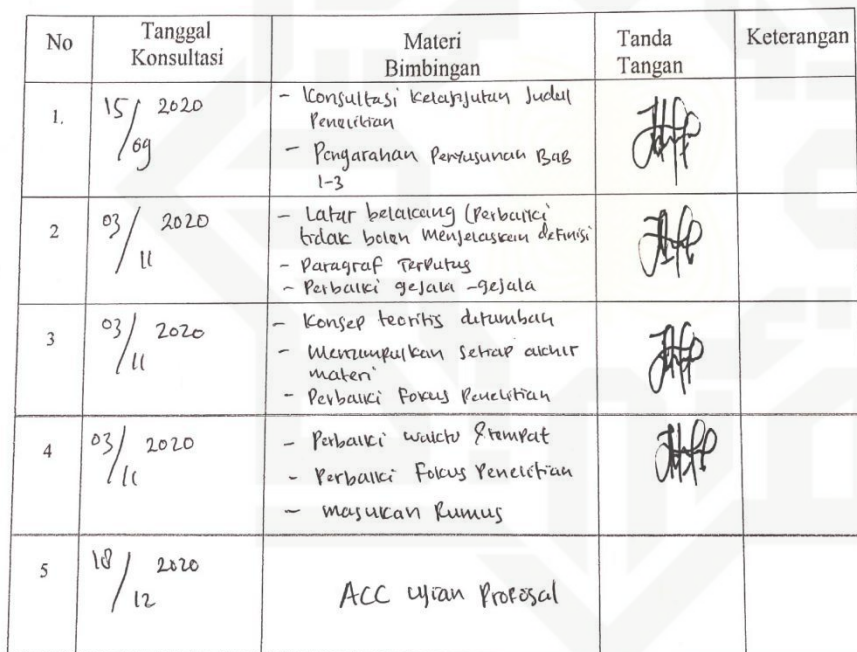 No Tanggal Konsultasi Materi Bimbingan Tanda Tangan Keterangan
1. 15/09 2020
- Konsultasi Kelanjutan Judul
Penelitian
- Pengarahan Penyusunan BAB
1-3
2 03/11 2020
- Latar belakang (Perbaiki
tidak boleh Menjelaskan definisi
- Paragraf Terputus
- Perbaiki gejala-gejala
3 03/11 2020
- Konsep teoritis ditambah
- Menyimpulkan Setiap akhir
materi
- Perbaiki Fokus Penelitian
4 03/11 2020
- Perbaiki waktu & tempat
- Perbaiki Fokus Penelitian
- masukan Rumus
5 18/12 2020
ACC Ujian Proposal